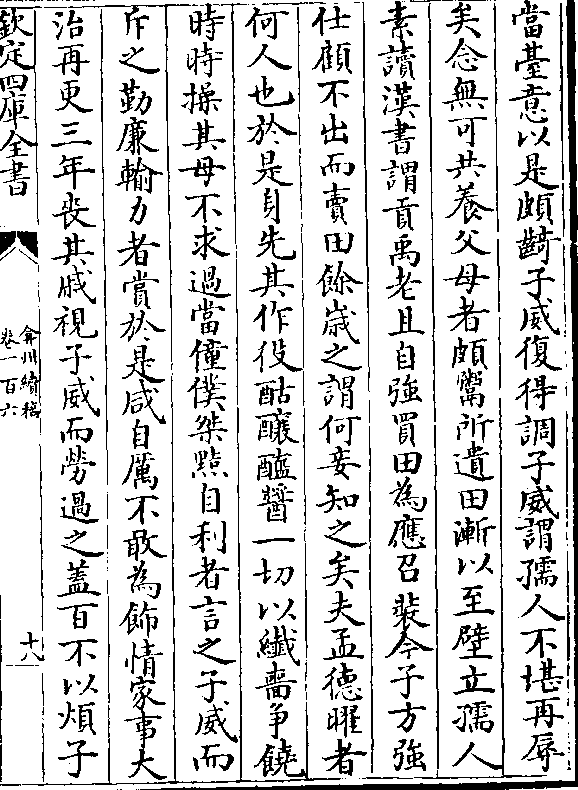 當臺意以是頗齮子威復得調子威謂孺人不堪再辱
矣念無可共養父母者頗鬻所遺田漸以至壁立孺人
素讀漢書謂貢禹老且自強買田為應召裝今子方強
仕顧不出而賣田餘歲之謂何妾知之矣夫孟德曜者
何人也於是身先其作役酤釀醯醬一切以纖嗇爭饒
時時操其毋不求過當僮僕桀黠自利者言之子威而
斥之勤廉輸力者賞於是咸自厲不敢為飾情家事大
治再更三年喪其戚視子威而勞過之蓋百不以煩子
欽定四庫全書
弇州續稿
卷一百六
十八